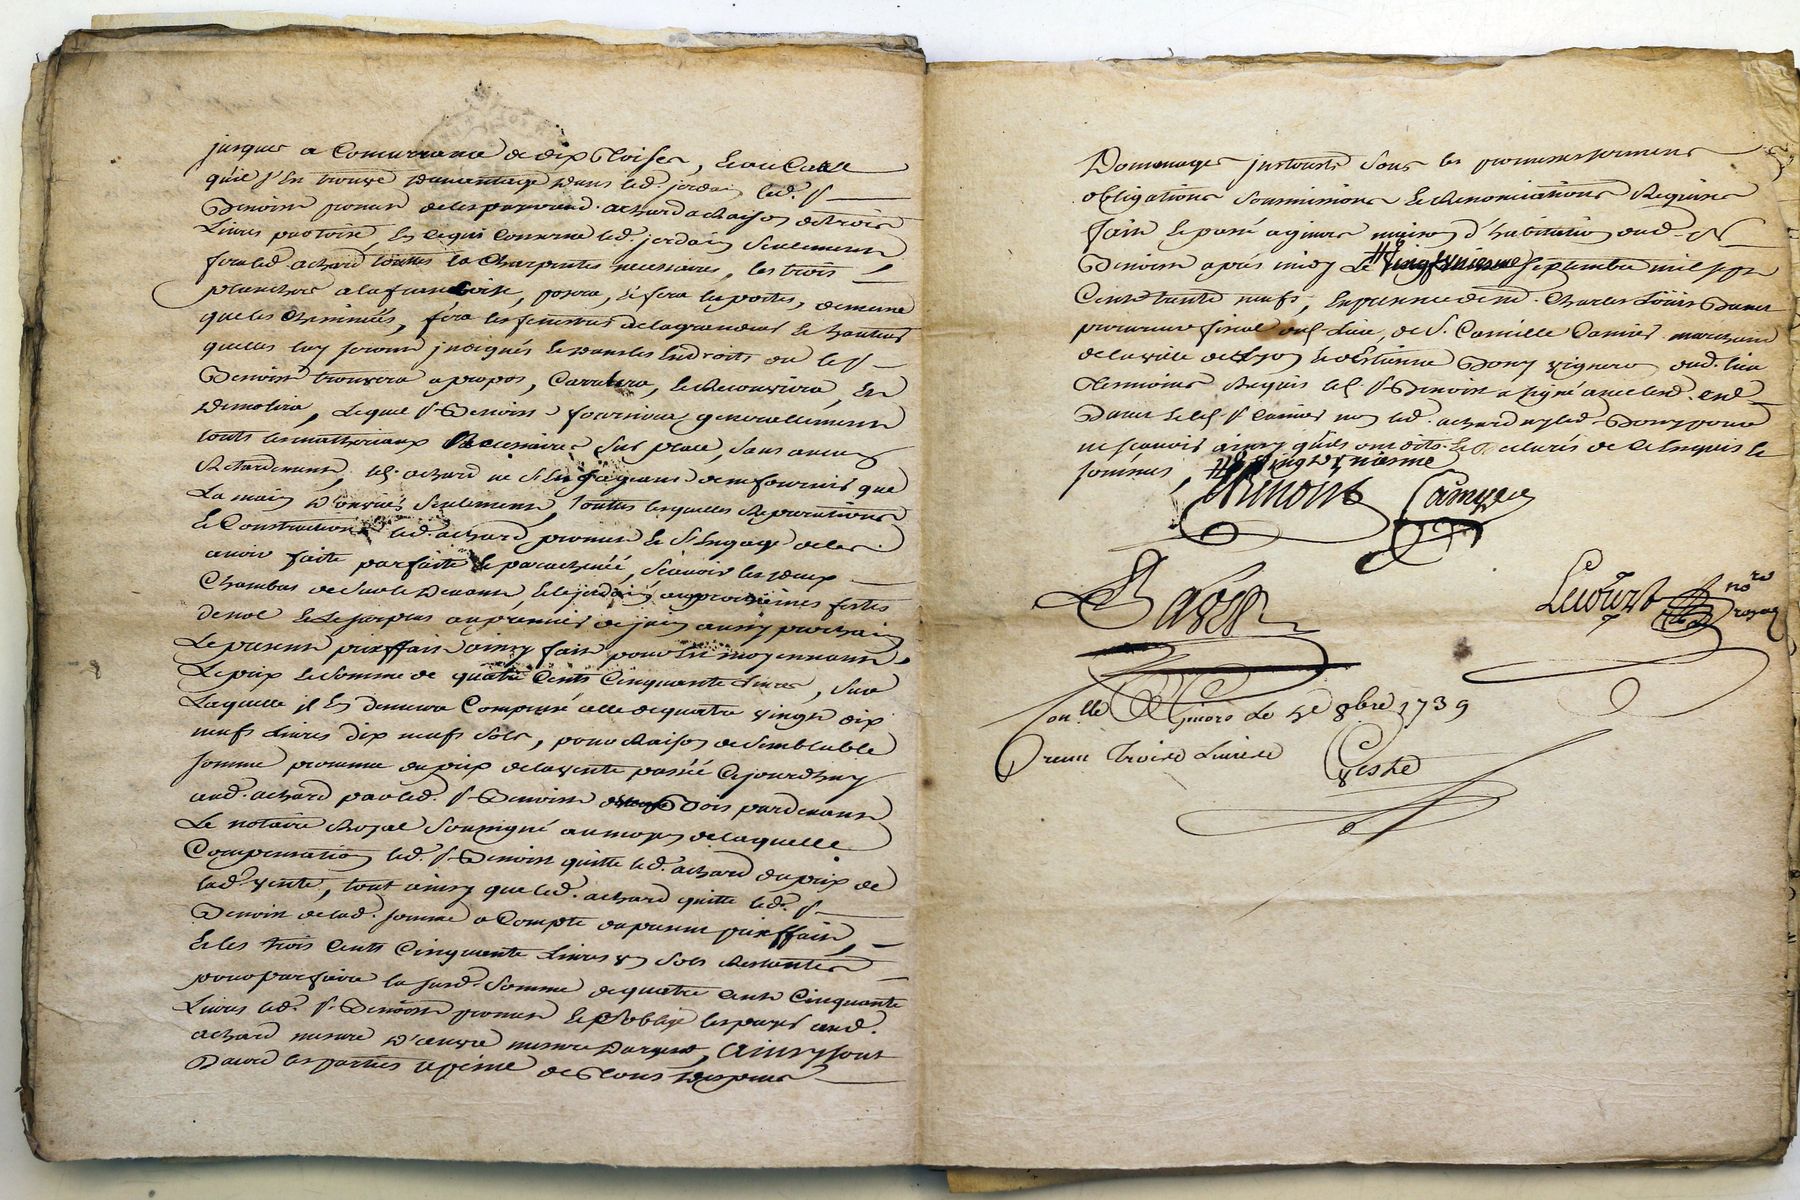 jusques a Concurrance de dix Toises, Et au Casse
qu'il s'En trouve davantage dans led. jordain led. Sr
Benoist promet de les payer aud. achard a Raison de trois
Livres par toise, En ce qui Concerne led. jordain seulement
fera led. achard touttes la Charpentes necessaires, les trois
planchers a la francoise, posera, Et fera les portes, de meme
que les Cheminées, fera les fenestres de la grandeur Et hauteur
quelles luy seront indiqués Et dans les Endroits ou le Sr
Benoist trouvera a propos, Carrelera, Et Recouvrira, En
demolira, Lequel Sr Benoist fournira generallement
touts les matheriaux Necessaires sur place, sans aucun
Retardement, led. achard ne s'Engageant de ne fournir que
La main d'ouvrier seulement, touttes lesquelles Reparations
Et Constructions led. achard promet Et s'Engage de les
avoir faite parfaite Et parachevée, scavoir les deux
Chambres de sur le Devant, Et le jordain aux prochaines festes
de noel Et Le surplus au premier de juin aussy prochain
Le present prixffait ainsy fait pour Et moyennant
Le prix Et Somme de quatre Cents Cinquante Livres, sur
Laquelle il En demeure Compensé celle de quatre vingt dix
neufs Livres dix neufs sols, pour Raison de semblable
somme provenue du prix de la vente passée Cejourd'huy
aud. achard par led. Sr Benoist pardevant
Le notaire Royal soussigné au moyen de laquelle
Compensation led. Sr Benoist quitte led. achard du prix de
lad. vente, tout ainsy que led. achard quitte led. Sr
Benoist de lad. somme a Compte du present prixffait,
Et les trois Cents Cinquante Livres un sols Restantes
pour parfaire la susd. Somme de quatre Cents Cinquante
Livres led. Sr Benoist promet Et s'oblige les payer aud.
achard mesure d'œuvre mesure d'argent, Ainsy sont
D'accord les parties a peine de Tous Despens
Dommages jnterests sous les promesses serments
obligations soumissions Et Renonciations Requises
fait Et passé a givors maison d'habitation dud. Sr
Benoist après midy Le # vingtuniesme septembre mil sept
Cents trente neufs, En presence de me. Charles Loüis Davet
procureur fiscal dud. Lieu, de Sr. Camille Camier marchand
de la ville de Lyon Et d'Estienne Dony vigneron dud. lieu
Temoins Requis led. Sr Benoist a signé avec led. me
Davet Et led. Sr Camier non led. achard ny led. Dony pour
ne scavoir ainsy qu'ils ont dits Et declarés de Ce Enquis Et
sommés, # vingt uniesme
Benoist Camier
Davet
Lecourt nore royal
Con.lle a Givors Le 4e 8bre 1739
Receu Trois Livres